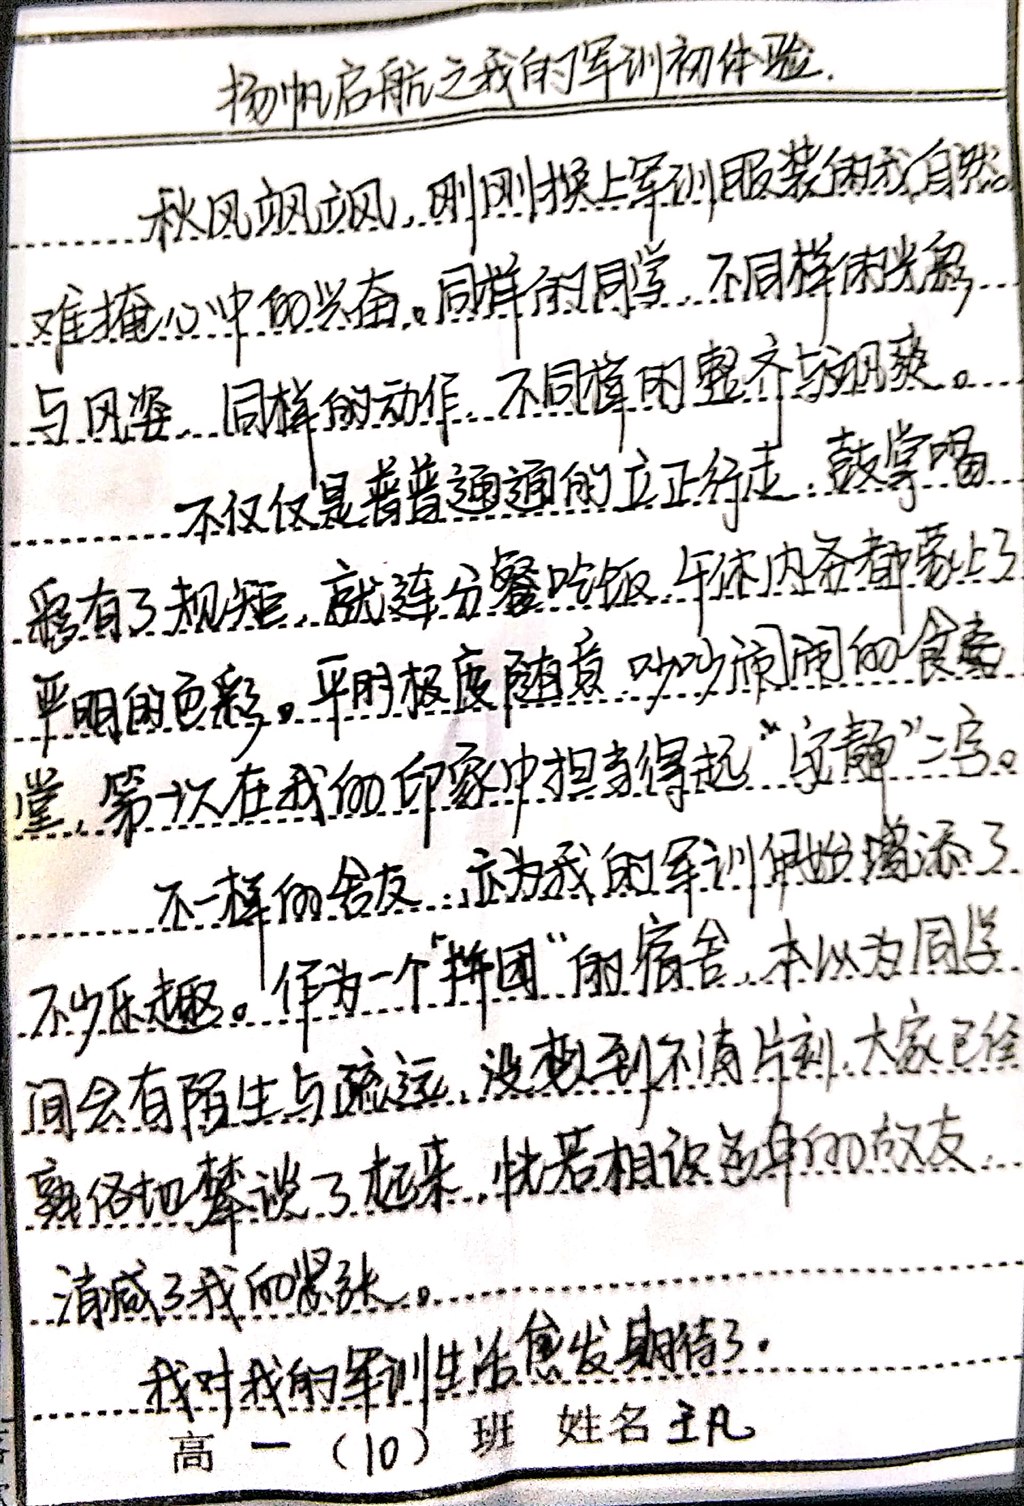 扬帆启航之我的军训初体验.
秋风飒飒,刚刚换上军训服装的我,自然
难掩心中的兴奋。同样的同学,不同样的光彩
与风姿,同样的动作,不同样的整齐与飒爽。
不仅仅是普普通通的立正行走,鼓掌喝
彩有了规矩,就连分餐吃饭,午休内务都蒙上了
严明的色彩。平时极度随意,吵吵闹闹的食
堂,第一次在我的印象中担当得起“安静”二字。
不一样的舍友,亦为我的军训开始增添了
不少乐趣。作为一个“拼团”的宿舍,本以为同学
间会有陌生与疏远,没想到不消片刻,大家已经
熟络地攀谈了起来,恍若相识多年的故友,
消减了我的紧张。
我对我的军训生活愈发期待了.
高一(10)班 姓名王凡